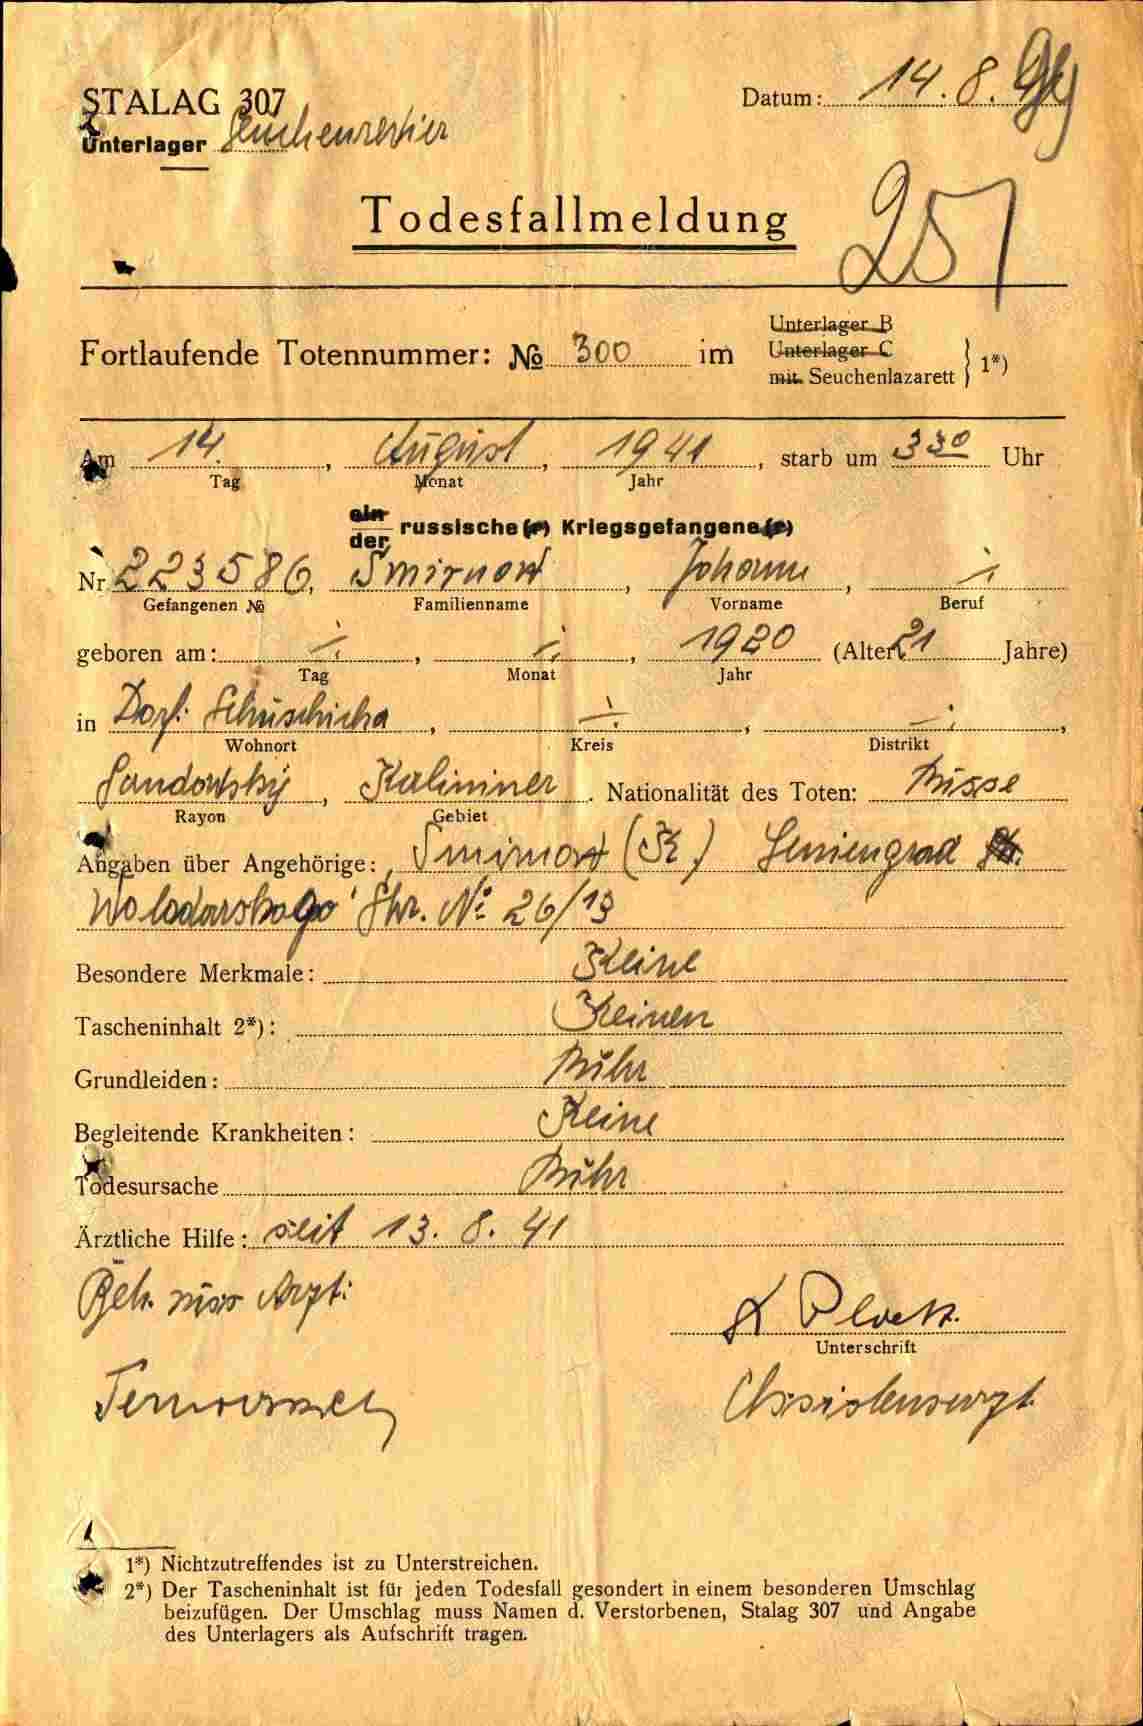 STALAG 307
Datum: 14. 8. 41
Unterlager Seuchenrevier
Todesfallmeldung
257
Fortlaufende Totennummer: № 300 im
Unterlager B
Unterlager C
mit Seuchenlazarett } 1*)
Am 14. , August , 1941 , starb um 3 30 Uhr
Tag Monat Jahr
ein
der russische(r) Kriegsgefangene(r)
Nr 223586, Smirnow , Johann , ./.
Gefangenen № Familienname Vorname Beruf
geboren am: ./. , ./. , 1920 (Alter 21 Jahre)
Tag Monat Jahr
in Dorf: Schuschicha , ./. , ./. ,
Wohnort Kreis Distrikt
Sandowsky , Kalininer . Nationalität des Toten: Russe
Rayon Gebiet
Angaben über Angehörige: Smirnow (K.) Leniengrad
Woladarskago Str. №: 26/13
Besondere Merkmale: Keine
Tascheninhalt 2*): Keinen
Grundleiden: Ruhr
Begleitende Krankheiten: Keine
Todesursache Ruhr
Ärztliche Hilfe: seit 13. 8. 41
Beh. russ Arzt:
Unterschrift
Assistensarzt.
1*) Nichtzutreffendes ist zu Unterstreichen.
2*) Der Tascheninhalt ist für jeden Todesfall gesondert in einem besonderen Umschlag
beizufügen. Der Umschlag muss Namen d. Verstorbenen, Stalag 307 und Angabe
des Unterlagers als Aufschrift tragen.